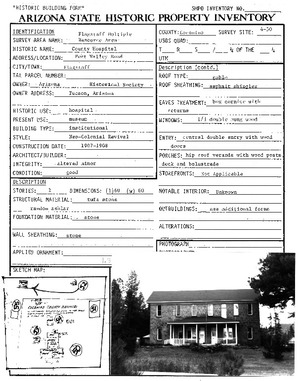 "HISTORIC BUILDING FORM"
SHPO INVENTORY NO.
ARIZONA STATE HISTORIC PROPERTY INVENTORY
IDENTIFICATION Flagstaff Multiple
SURVEY AREA NAME: Resource Area
HISTORIC NAME: County Hospital
ADDRESS/LOCATION: Fort Valley Road
CITY/TOWN: Flagstaff
TAX PARCEL NUMBER:
OWNER: Arizona Historical Society
OWNER ADDRESS: Tucson, Arizona
HISTORIC USE: hospital
PRESENT USE: museum
BUILDING TYPE: Institutional
STYLE: Neo-Colonial Revival
CONSTRUCTION DATE: 1907-1908
ARCHITECT/BUILDER:
INTEGRITY: altered minor
CONDITION: good
DESCRIPTION
STORIES: 2 DIMENSIONS: (L)60 (W)
STRUCTURAL MATERIAL: tufa stone
random ashlar
FOUNDATION MATERIAL: stone
WALL SHEATHING: stone
APPLIED ORNAMENT:
SKETCH MAP:
COUNTY: Coconino SURVEY SITE: 4-50
USGS QUAD:
T R S / 4 OF THE 4
UTM
Description (contd.)
ROOF TYPE: gable
ROOF SHEATHING: asphalt shingles
EAVES TREATMENT: box cornice with
returns
WINDOWS: 1/1 double hung wood
ENTRY: central double entry with wood
doors
PORCHES: hip roof veranda with wood posts
deck and balustrade
STOREFRONTS: Not Applicable
NOTABLE INTERIOR: Unknown
OUTBUILDINGS: see additional forms
ALTERATIONS:
PHOTOGRAPH